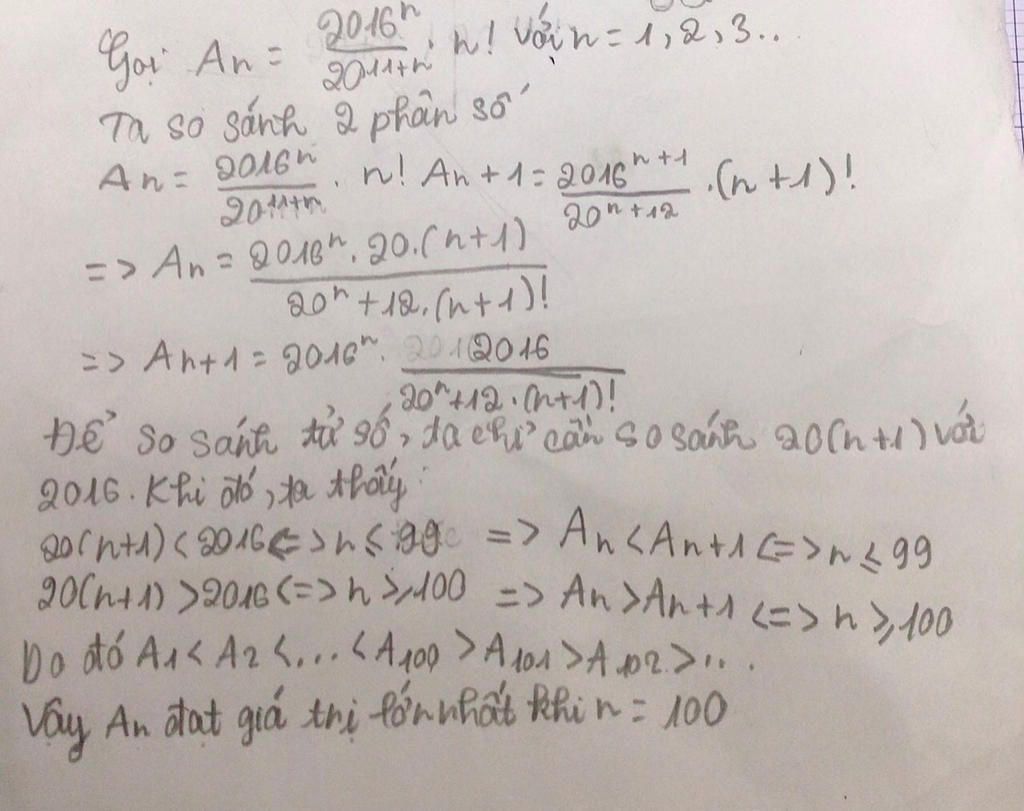 Gọi An = 2016^n / 20^11+n . n! với n = 1, 2, 3..
Ta so sánh 2 phân số
An = 2016^n / 20^11+n . n! An + 1 = 2016^n+1 / 20^n+12 . (n + 1)!
=> An = 2016^n . 20.(n+1) / 20^n + 12.(n+1)!
=> An+1 = 2016^n . 2016 / 20^n+12 . (n+1)!
Để so sánh tử số, ta chỉ cần so sánh 20(n+1) với
2016. Khi đó, ta thấy:
20(n+1) < 2016 <=> n ≤ 99 => An < An+1 <=> n ≤ 99
20(n+1) > 2016 <=> n ≥ 100 => An > An+1 <=> n ≥ 100
Do đó A1 < A2 <... < A100 > A101 > A102 > ...
Vậy An đạt giá trị lớn nhất khi n = 100